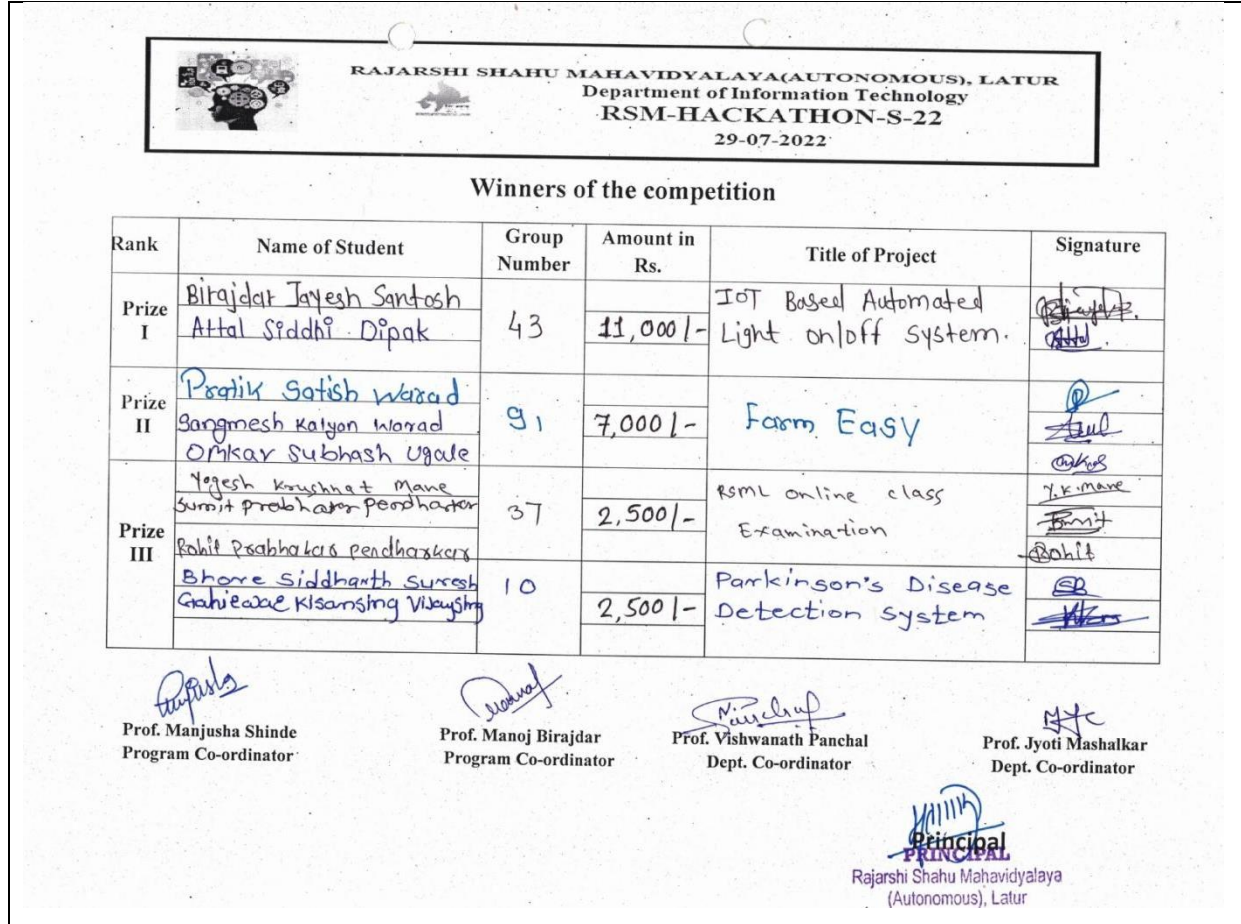 RAJARSHI SHAHU MAHAVIDYALAYA(AUTONOMOUS), LATUR
Department of Information Technology
RSM-HACKATHON-S-22
29-07-2022
Winners of the competition
Rank Name of Student Group Number Amount in Rs. Title of Project Signature
Prize I
Birajdar Jayesh Santosh
Attal Siddhi Dipak
43
11,000/-
IOT Based Automated
Light on/off System.
Attal.
Prize II
Pratik Satish Warad
Sangmesh Kalyan Warad
Omkar Subhash Ugale
91
7,000/-
Farm Easy
Omkar
Prize III
Yogesh Krushnat Mane
Sumit Prabhakar Pendharkar
Rohit Prabhakar Pendharkar
37
2,500/-
RSML online class
Examination
Y.K.Mane
Sumit
Rohit
Bhore Siddhanth Suresh
Kisansing Vijaysing
10
2,500/-
Parkinson's Disease
Detection System
SB
Prof. Manjusha Shinde
Program Co-ordinator
Prof. Manoj Birajdar
Program Co-ordinator
Prof. Vishwanath Panchal
Dept. Co-ordinator
Prof. Jyoti Mashalkar
Dept. Co-ordinator
Principal
PRINCIPAL
Rajarshi Shahu Mahavidyalaya
(Autonomous), Latur